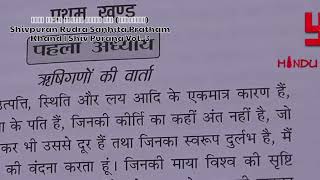 प्रथम खण्ड
Shivpuran Rudra Sanhita Pratham
Khand | Shiv Purana Vol-3
पहला अध्याय
ऋषिगणों की वार्ता
HINDU
उत्पत्ति, स्थिति और लय आदि के एकमात्र कारण हैं,
के पति हैं, जिनकी कीर्ति का कहीं अंत नहीं है, जो
कर भी उससे दूर हैं तथा जिनका स्वरूप दुर्लभ है, मैं
की वंदना करता हूं। जिनकी माया विश्व की सृष्टि